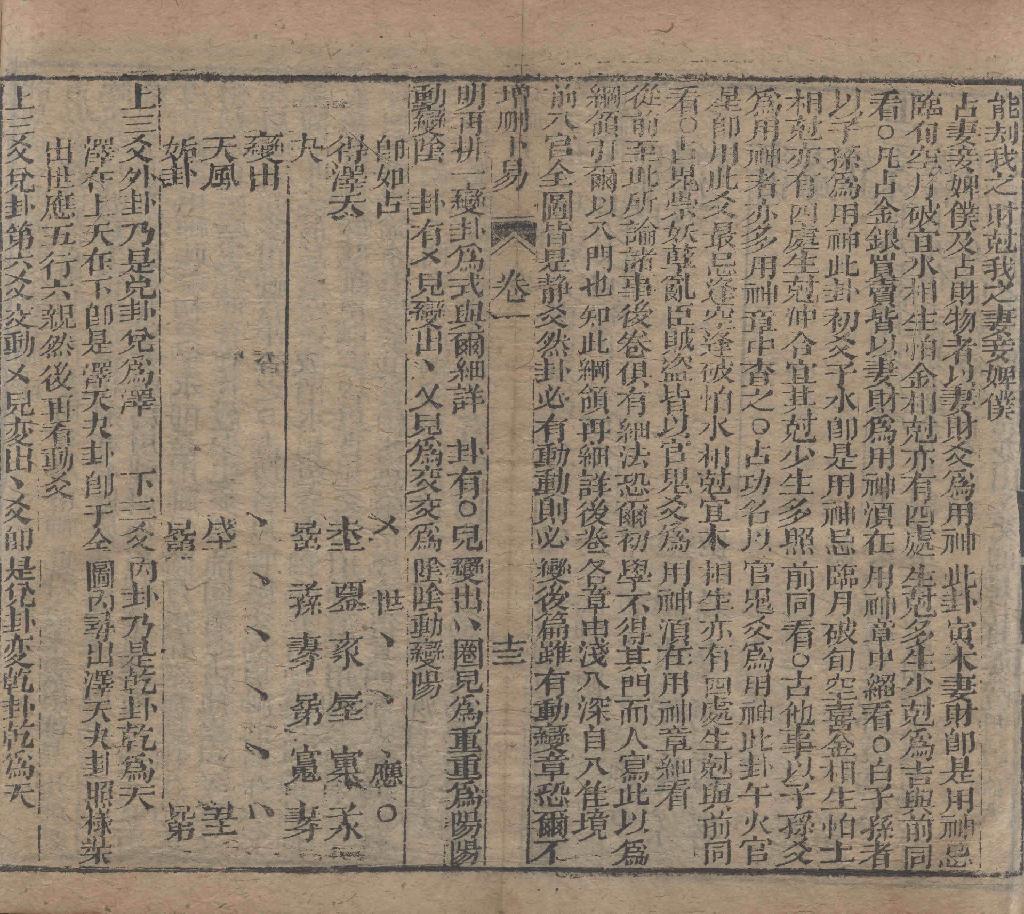 能尅我之財尅我之妻妾婢僕
占妻妾婢僕及占財物者以妻財爻為用神 此卦寅木妻財即是用神忌
臨旬空月破宜水相生怕金相尅亦有四處生尅多生少尅為吉與前同
看○凡占金銀買賣皆以妻財為用神須在用神章中細看○占子孫者
以子孫為用神此卦初爻子水即是用神忌臨月破旬空喜金相生怕土
相尅亦有四處生尅冲合宜其尅少生多照前同看○占他事以子孫爻
為用神者亦多用神章中查之○占功名以官鬼爻為用神此卦午火官
星即用此爻最忌逢空逢破怕水相尅宜木相生亦有四處生尅與前同
看○占鬼祟妖孽亂臣賊盜皆以官鬼爻為用神須在用神章細看
從前至此所論諸事後卷俱有細法恐爾初學不得其門而入寫此以為
綱領引爾以入門也知此綱領再細詳後卷各章由淺入深自入佳境
前八宮全圖皆是静爻然卦必有動動則必變後篇雖有動變章恐爾不
增刪卜易 卷一 十三
明再拼一變卦為式與爾細詳 卦有○兒變出、、圈見為重重為陽陽
動變陰 卦有乂見變出、乂見為交交為陰陰動變陽
即如占 乂 世、、 應○
得澤天
夬
變出 、、、、、、、
天風
姤卦
上三爻外卦乃是兌卦兌為澤 下三爻內卦乃是乾卦乾為天
澤在上天在下即是澤天夬卦即于全圖內尋出澤天夬卦照樣粧
出世應五行六親然後再看動爻
上三爻兌卦第六爻交動乂見变出、爻即是兌卦变乾卦乾為天